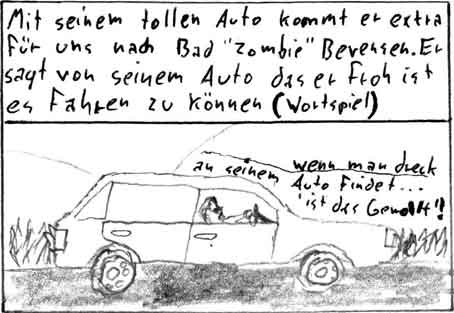 Mit seinem tollen Auto kommt er extra
für uns nach Bad "Zombie" Bevensen. Er
sagt von seinem Auto das er froh ist
es Fahren zu können (Wortspiel)
wenn man dreck
an seinem Auto Findet...
ist das Gewollt"!